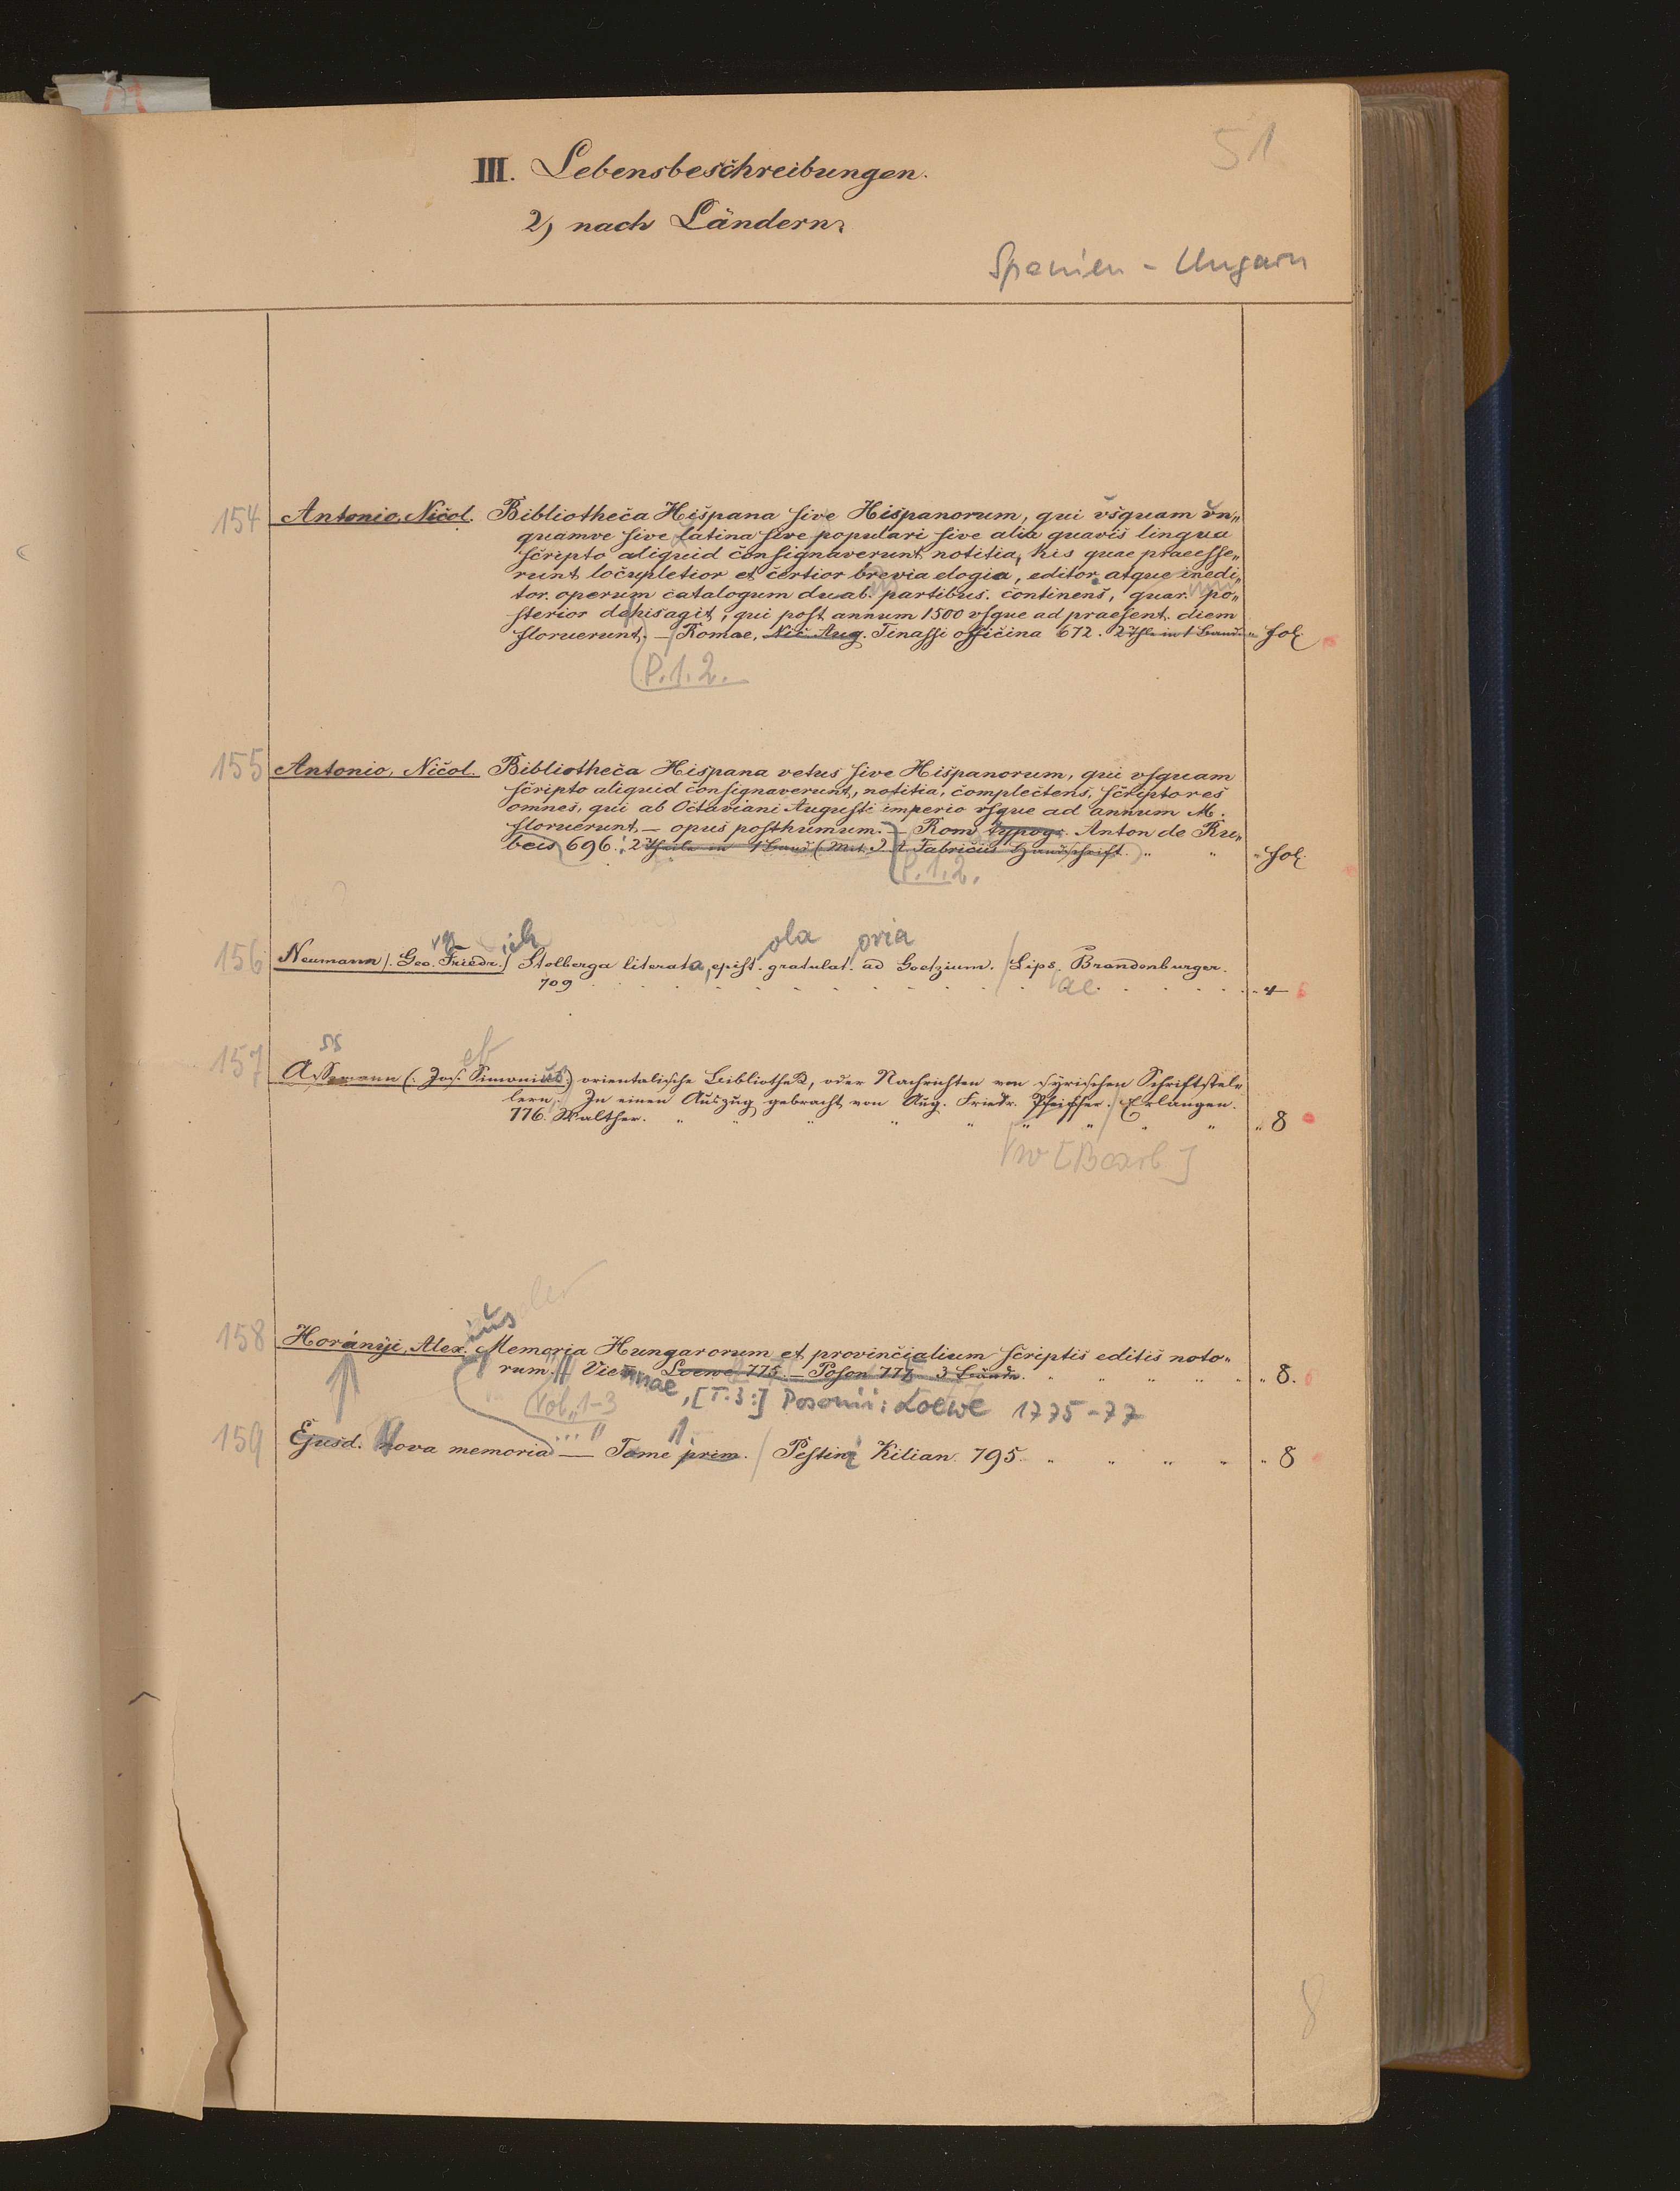 51
III. Lebensbeschreibungen.
2) nach Ländern.
Spanien - Ungarn
154 Antonio, Nicol. Bibliotheca Hispana sive Hispanorum, qui vsquam vn„
quamve sive latina sive populari sive alia quavis lingua
scripto aliquid consignaverunt notitia, his quae praecesse„
runt locupletior et certior brevia elogia, editor. atque inedi„
tor. operum catalogum duab. partibus. continens, quar. po„
sterior de his agit, qui post annum 1500 vsque ad praesent. diem
floruerunt. — Romae, Nic. Aug. Tinassi officina 672. 2 Thle in 1 Band. „ fol.
P. 1. 2.
155 Antonio, Nicol. Bibliotheca Hispana vetus sive Hispanorum, qui vsquam
scripto aliquid consignaverunt, notitia, complectens, scriptores
omnes, qui ab Octaviani Augusti imperio vsque ad annum M.
floruerunt, — opus posthumum. — Rom typogr. Anton de Ru„
beis 696. 2 Theile in 1 Band (Mit J. A. Fabricius Handschrift.) „ „ „ fol.
P. 1. 2.
ola oria
156 Neumann /. Geo. Friedr. / Stolberga literata, epist. gratulat. ad Goetzium. / Lips. Brandenburger.
709 ae „ 4
ss
157 Assemann (: Jos. Simonius:) orientalische Bibliothek, oder Nachrichten von syrischen Schriftstel„
lern. In einen Auszug gebracht von Aug. Friedr. Pfeiffer. / Erlangen.
776. Walther. „ „ „ „ „ „ „ „ „ 8
[Bearb]
ius
158 Horányi, Alex. Memoria Hungarorum et provincialium scriptis editis noto„
rum. Viennae, Loewe 775. — Poson 777 3 Bände. „ „ „ „ „ „ 8.
Vol. 1-3 [T. 3:] Posonii: Loewe 1775-77
1.
159 Ejusd. Nova memoria — Tome prim. / Pestini Kilian 795. „ „ „ „ „ 8
8